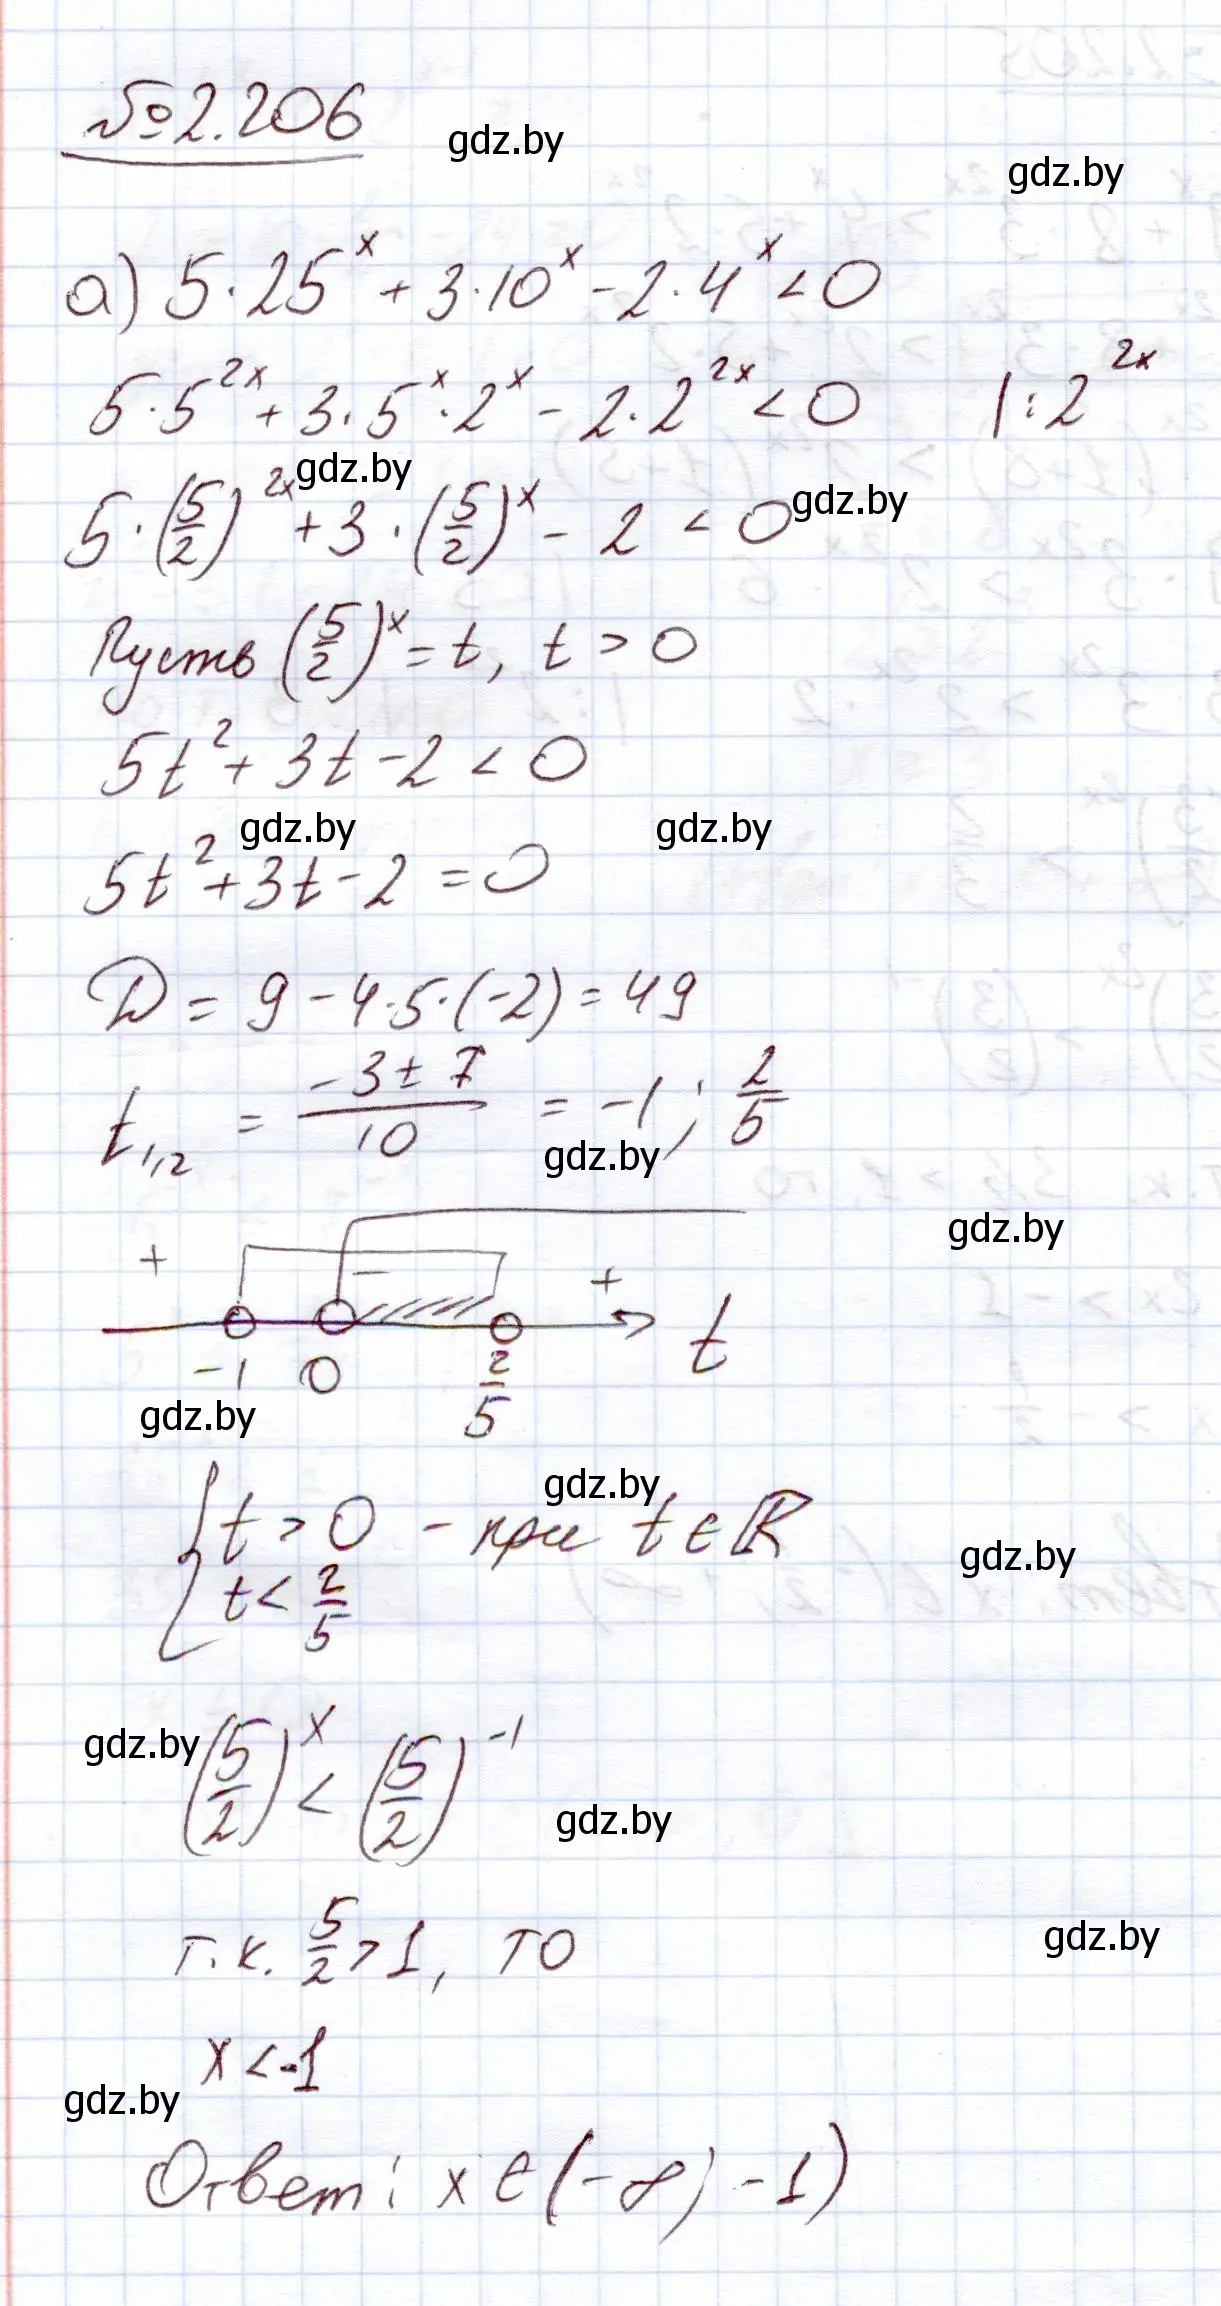 №2.206
gdz.by
gdz.by
а) 5·25^x + 3·10^x - 2·4^x < 0
5·5^{2x} + 3·5^x·2^x - 2·2^{2x} < 0   |:2^{2x}
gdz.by
gdz.by
5·(5/2)^{2x} + 3·(5/2)^x - 2 < 0
Пусть (5/2)^x = t, t > 0
5t² + 3t - 2 < 0
gdz.by
gdz.by
5t² + 3t - 2 = 0
D = 9 - 4·5·(-2) = 49
t_{1,2} = (-3 ± 7)/10 = -1; 2/5
gdz.by
gdz.by
+ - +
-1 0 2/5 t
gdz.by
gdz.by
{ t > 0 - при t ∈ ℝ
t < 2/5
gdz.by
gdz.by
(5/2)^x < (5/2)^{-1}
gdz.by
т.к. 5/2 > 1, то
gdz.by
x < -1
gdz.by
Ответ: x ∈ (-∞; -1)